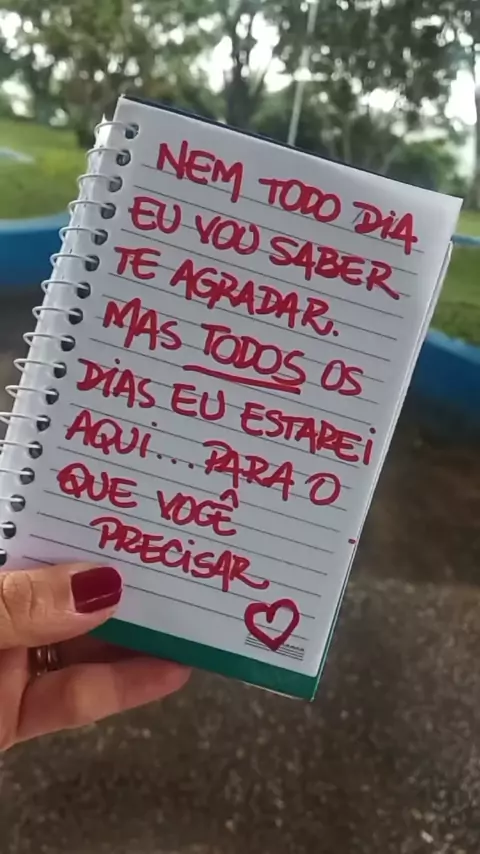 NEM TODO DIA
EU VOU SABER
TE AGRADAR.
MAS TODOS OS
DIAS EU ESTAREI
AQUI... PARA O
QUE VOCÊ
PRECISAR